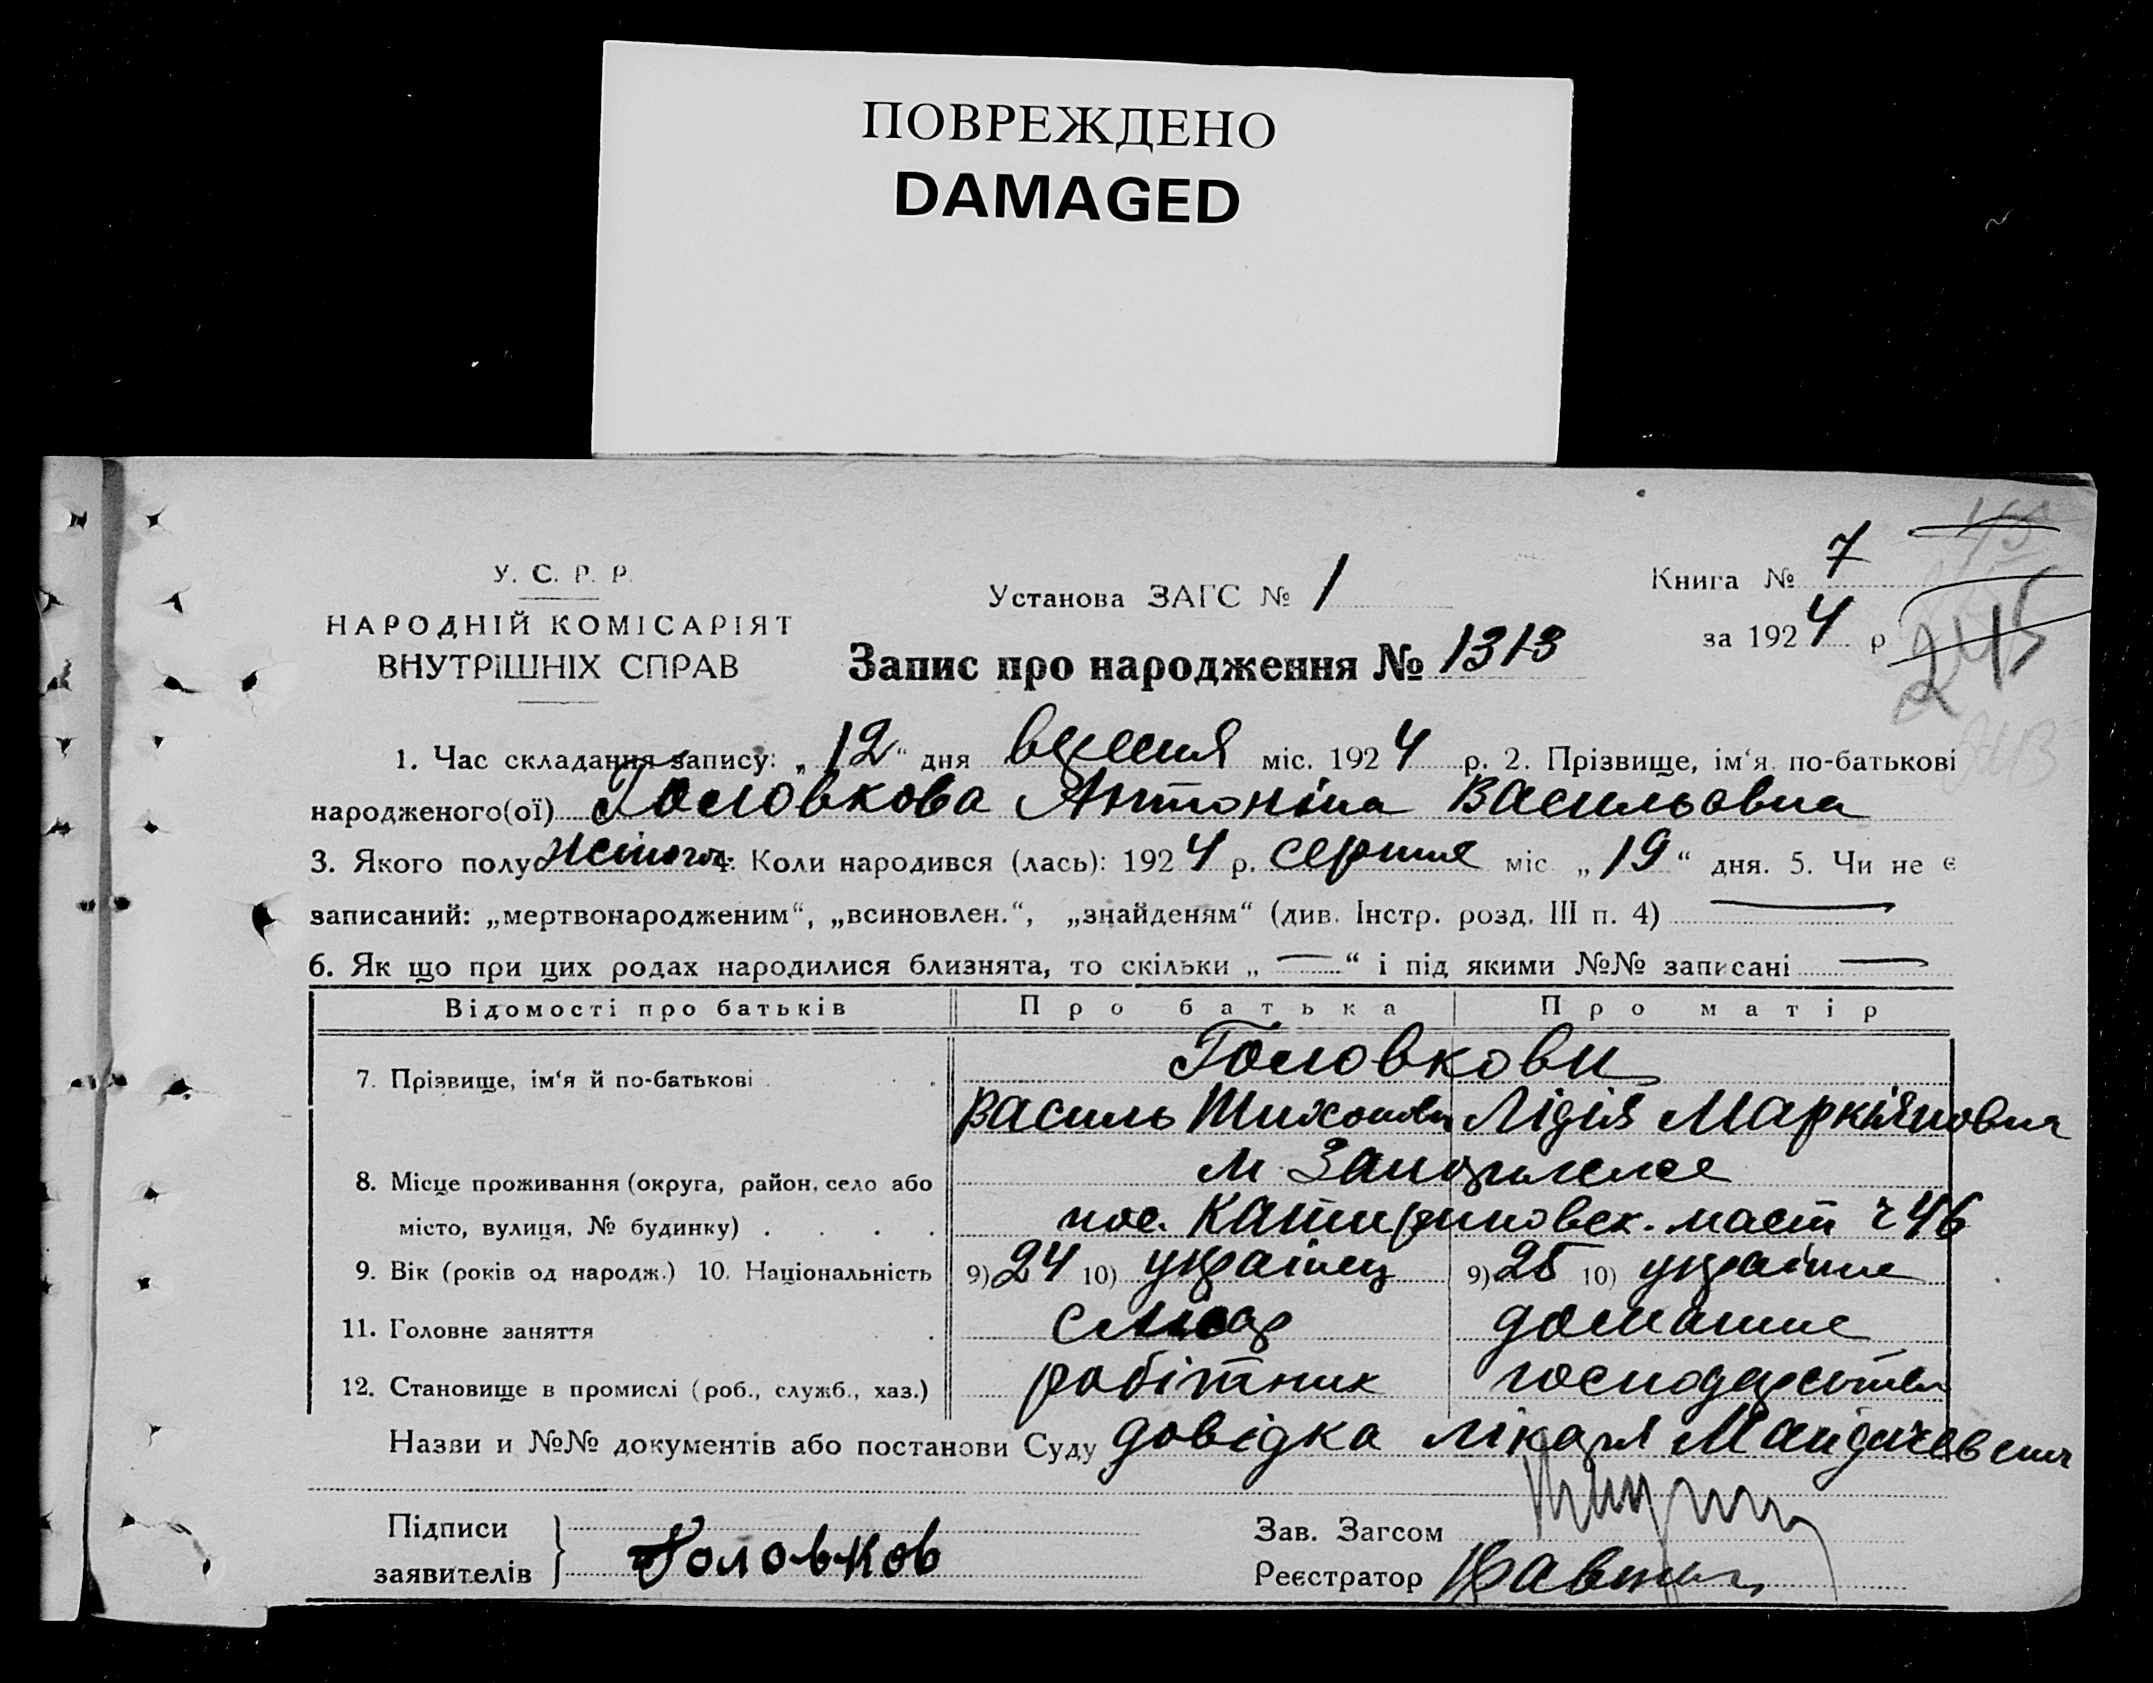 ПОВРЕЖДЕНО
DAMAGED
У. С. Р. Р.
НАРОДНІЙ КОМІСАРІЯТ
ВНУТРІШНІХ СПРАВ
Установа ЗАГС № 1
Книга № 7
за 1924 р
245
Запис про народження № 1313
1. Час складання запису: „12“ дня вересня міс. 1924 р. 2. Прізвище, ім‘я по-батькові
народженого(ої) Головкова Антоніна Васильовна
3. Якого полу жіночої 4. Коли народився (лась): 1924 р. серпня міс. „19“ дня. 5. Чи не є
записаний: „мертвонародженим“, „всиновлен.“, „знайденям“ (див. Інстр. розд. III п. 4) —
6. Як що при цих родах народилися близнята, то скільки „—“ і під якими №№ записані —
Відомості про батьків Про батька Про матір
7. Прізвище, ім‘я й по-батькові Головкови
Василь Тихонови Лідія Маркіяновна
8. Місце проживання (округа, район, село або м Запоріжжє
місто, вулиця, № будинку) пос. Катириновск. ч 46
9. Вік (років од народж.) 10. Національність 9) 24 10) українец 9) 25 10) українка
11. Головне заняття слюсар домашнє
12. Становище в промислі (роб., служб., хаз.) робітник господарство
Назви и №№ документів або постанови Суду довідка лікаря
Підписи
заявителів } Головков
Зав. Загсом
Реєстратор